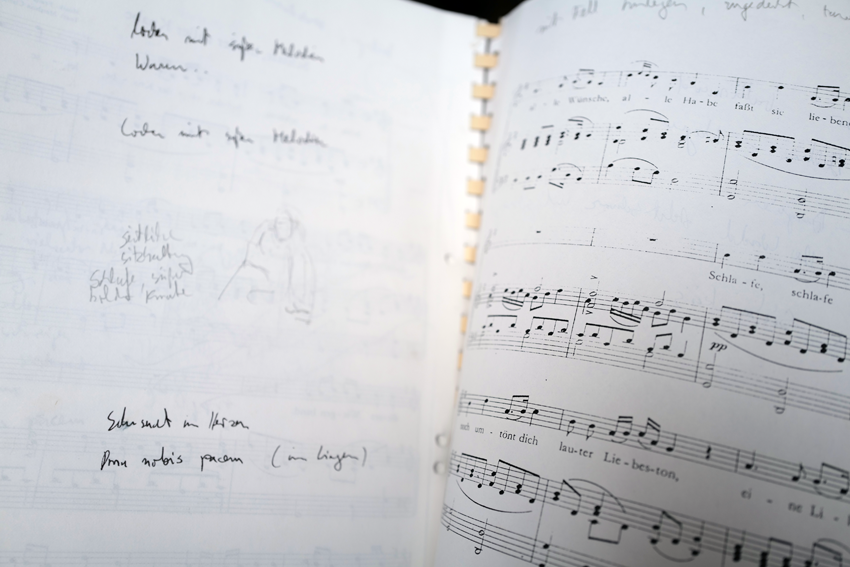 Locken mit süßen Melodien
Warum..
Locken mit süßen Melodien
seitliche
sitzhaltung
Schlafe, süßer
holder Knabe
Sehnsucht im Herzen
Dona nobis pacem (im Liegen)
mit
Wünsche, al - le Ha - be faßt sie lie - bend
Schla - fe, schla-fe
noch um - tönt dich lau-ter Lie - bes-ton,
ei - ne Li -
pp